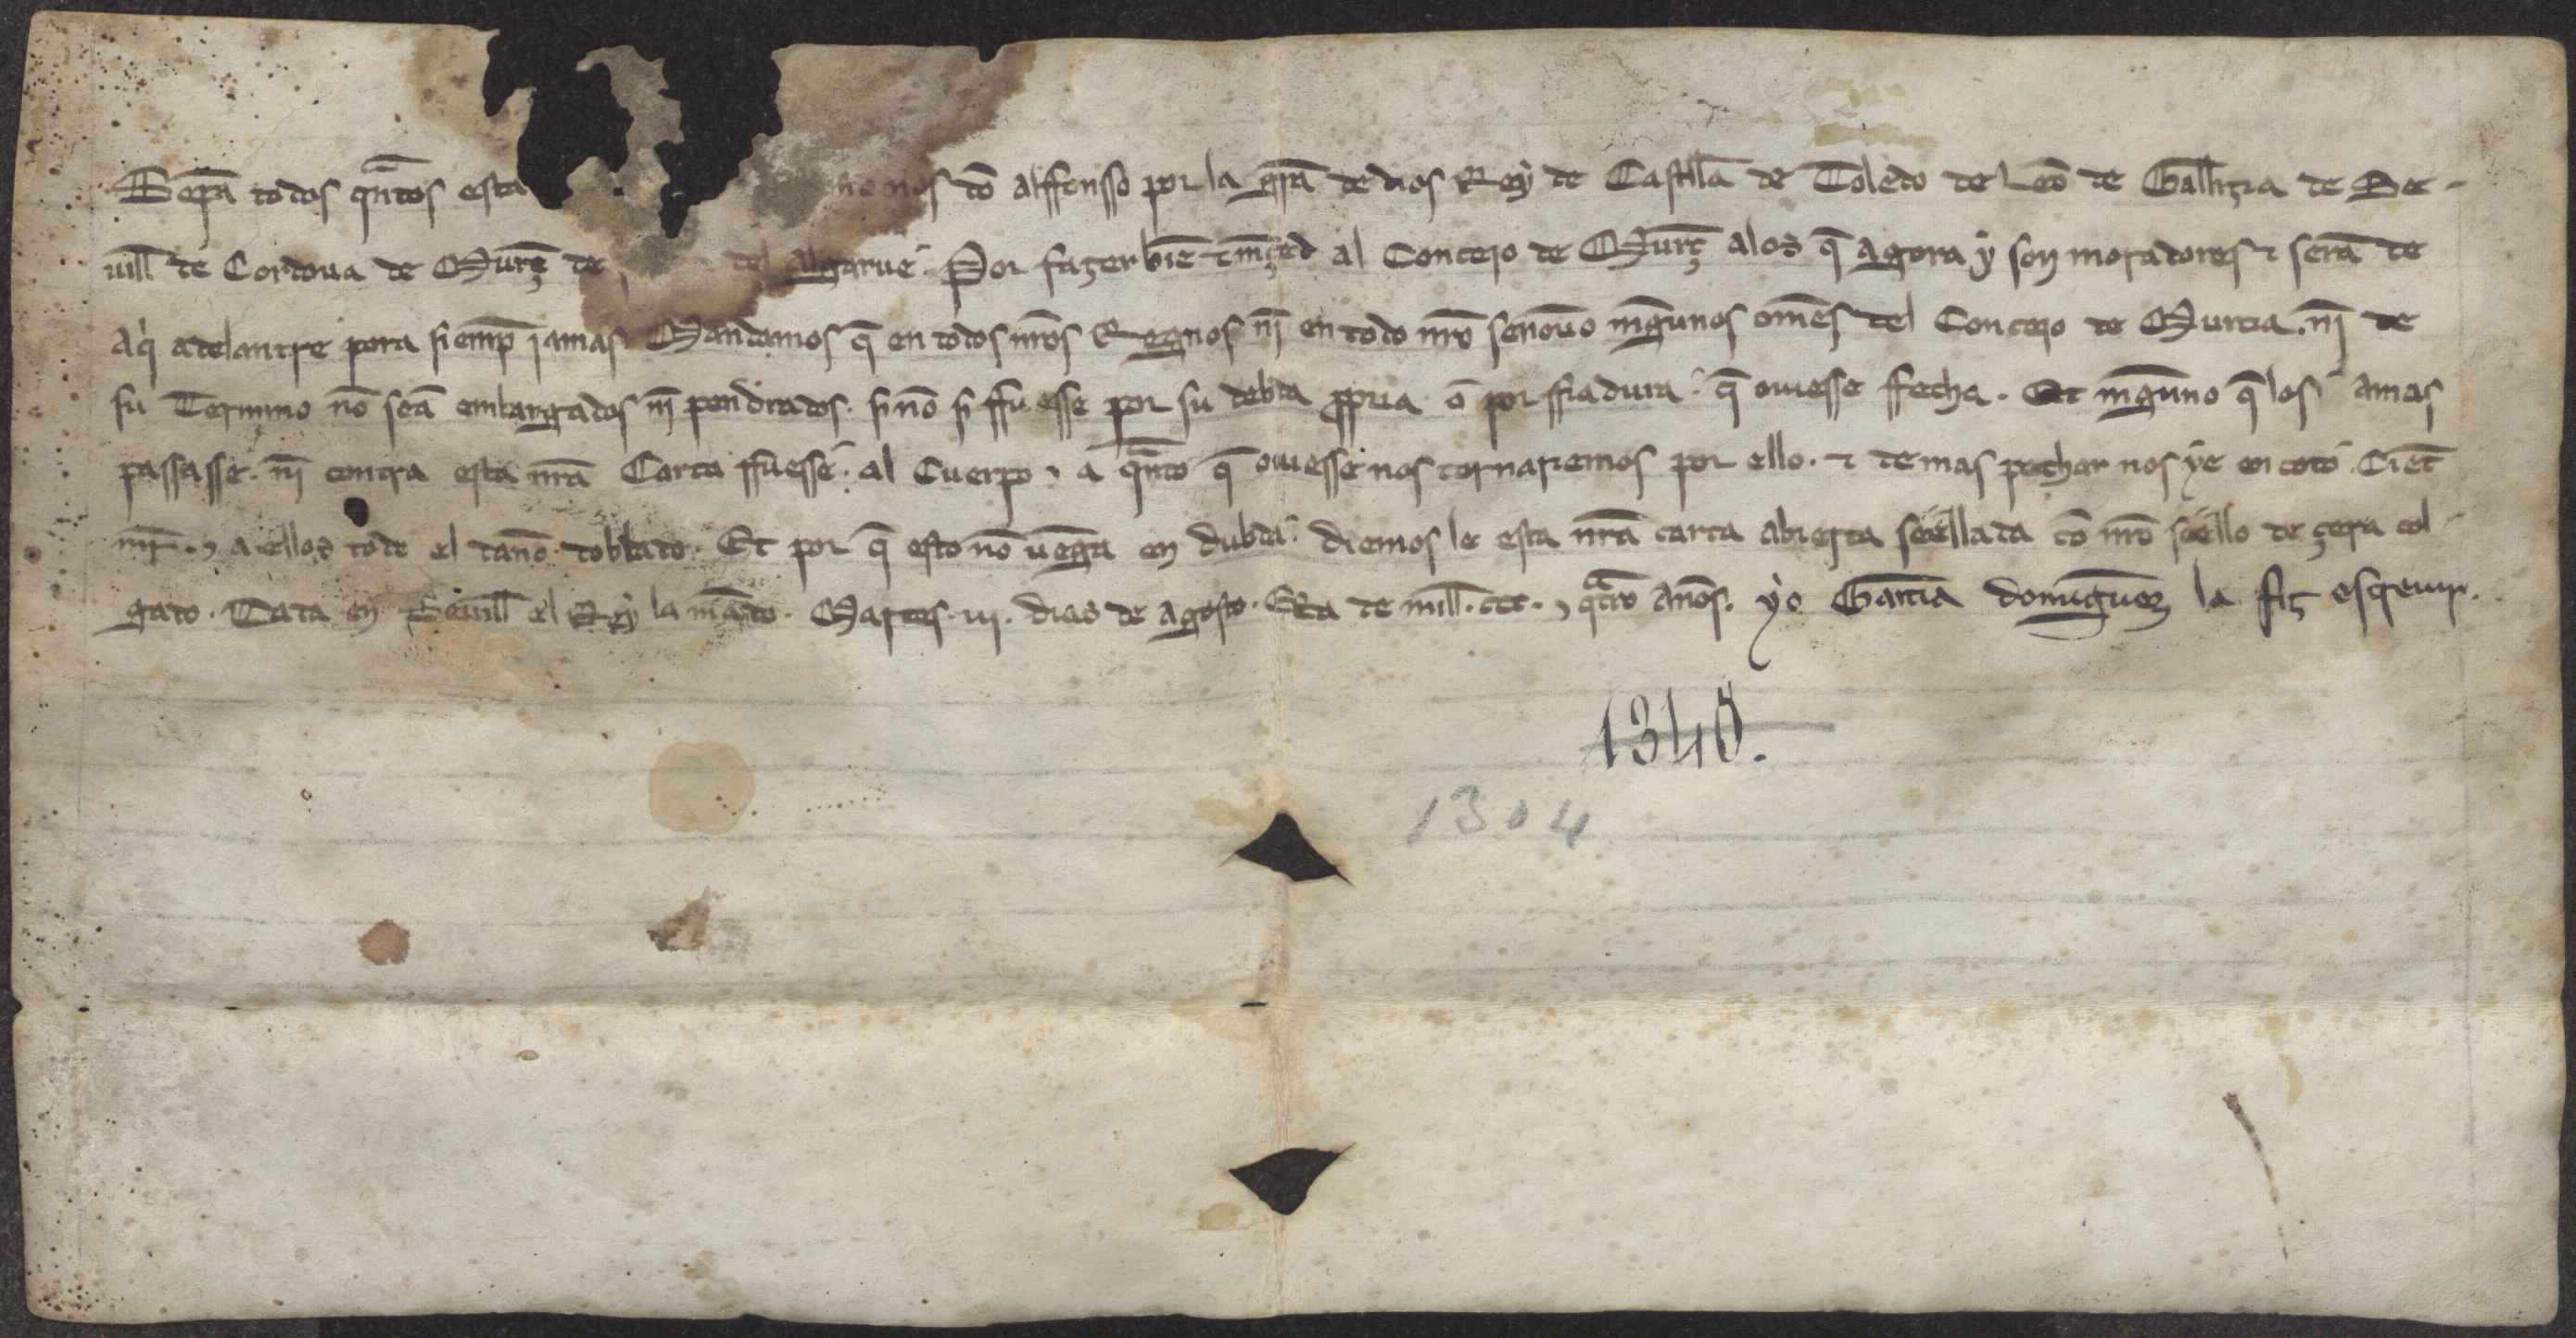 Sepã todos qñtos esta no nos dõ alffonsso por la grã de dios Rey de Castiella de Toledo de Leõ de Gallizia de Se-
uill de Cordoua de Murç de del Algarue. Por fazer biẽ τ mrçed al Conceio de Murç a los q̃ agora y son moradores τ serã de
aq̇ adelantre pora siemp̃ iamas. Mandamos q̃ en todos nr̃os Regnos nĩ en todo nr̃o sennorio ningunos omẽs del Conceio de Murcia. nĩ de
su Termino nõ seã embargados nĩ pendrados. si nõ si ffuesse por su debda propria o por ffiadura. q̃ ouiesse ffecha. Et ninguno q̃ los amas
passasse. nĩ contra esta nr̃a Carta ffuesse. al Cuerpo τ a qñto q̃ ouiesse nos tornariemos por ello. τ demas pechar nos ye en coto. Ciẽt
mr̃. τ a ellos todo el danno doblado. Et por q̃ esto nõ uẽga en dubda. diemos le esta nr̃a carta abierta seellada cõ nr̃o seello de çera col
gado. Dada en Seuill el Rey la mãdo. Martes. iii. dias de Agosto. Era de mill. ccc. τ qtro annos. yo Garcia dominguez la fiz escreuir.
1340.
1304